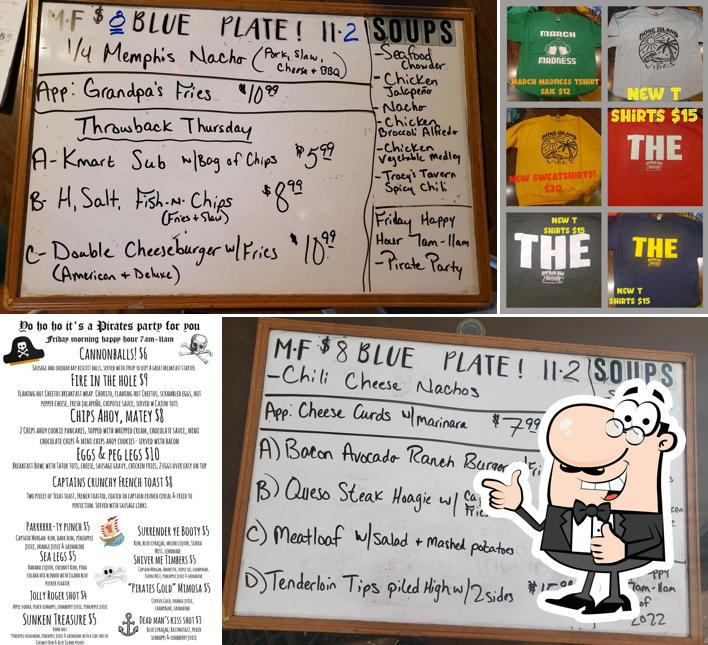 M-F $8 BLUE PLATE! 11-2
- 1/4 Memphis Nacho (Pork, Slaw, Cheese + BBQ)
App: Grandpa's Fries $10.99
Throwback Thursday
A- Kmart Sub w/Bag of Chips $5.99
B- H, Salt, Fish-N-Chips $8.99
(Fries + Slaw)
C- Double Cheeseburger w/Fries $10.99
(American + Deluxe)
SOUPS
- Seafood
Chowder
- Chicken
Jalapeño
- Nacho
- Chicken
Broccoli Alfredo
- Chicken
Vegetable Medley
- Tracy's Tavern
Spicy Chili
Friday Happy
Hour 7am-11am
- Pirate Party
MARCH
MADNESS
MARCH MADNESS TSHIRT
SALE $12
VIBES
NEW T
SHIRTS $15
VIBES
NEW SWEATSHIRTS!
$20
THE
NEW T
SHIRTS $15
THE
THE
NEW T
SHIRTS $15
Yo ho ho it's a Pirates party for you
Friday morning happy hour 7am-11am
Cannonballs! $6
Sausage and cheddar bay biscuit balls, served with syrup to dip! A great breakfast starter.
Fire in the hole $9
Flaming hot Cheetos breakfast wrap. Chorizo, flaming hot Cheetos, scrambled eggs, hot
pepper cheese, fresh jalapeño, chipotle sauce, served w Cajun tots
Chips Ahoy, Matey $8
2 chips ahoy cookie pancakes, topped with whipped cream, chocolate sauce, mini
chocolate chips & mini chips ahoy cookies - served with bacon
Eggs & peg legs $10
Breakfast Bowl with tator tots, cheese, sausage gravy, chicken fries, 2 eggs over easy on top
Captains crunchy French toast $8
Two pieces of Texas toast, french toasted, coated in captain crunch cereal & fried to
perfection. Served with sausage links
Parrrrrr-ty punch $5
Captain Morgan rum, dark rum, pineapple
juice, orange juice & grenadine
Sea legs $5
Banana liquor, coconut rum, pina
colada mix blended with island blue
pucker floater
Jolly Roger shot $4
Apple vodka, peach schnapps, cranberry juice, pineapple juice
Sunken Treasure $5
Surrender ye Booty $5
Rum, blue curaçao, melon liquor, sierra
mist, lemonade
Shiver me timbers $5
"Pirates Gold" Mimosa $5
Cuervo Gold, orange juice,
champagne, grenadine
Dead man's kiss shot $3
Blue curaçao, razzmatazz, peach
schnapps & cranberry juice
M-F $8 BLUE PLATE! 11-2
- Chili Cheese Nachos
App: Cheese Curds w/marinara $7.99
A) Bacon Avocado Ranch Burger
B) Queso Steak Hoagie w/
Fries
C) Meatloaf w/Salad + Mashed potatoes
D) Tenderloin Tips piled High w/2 sides
SOUPS
7am-11am
of
2022